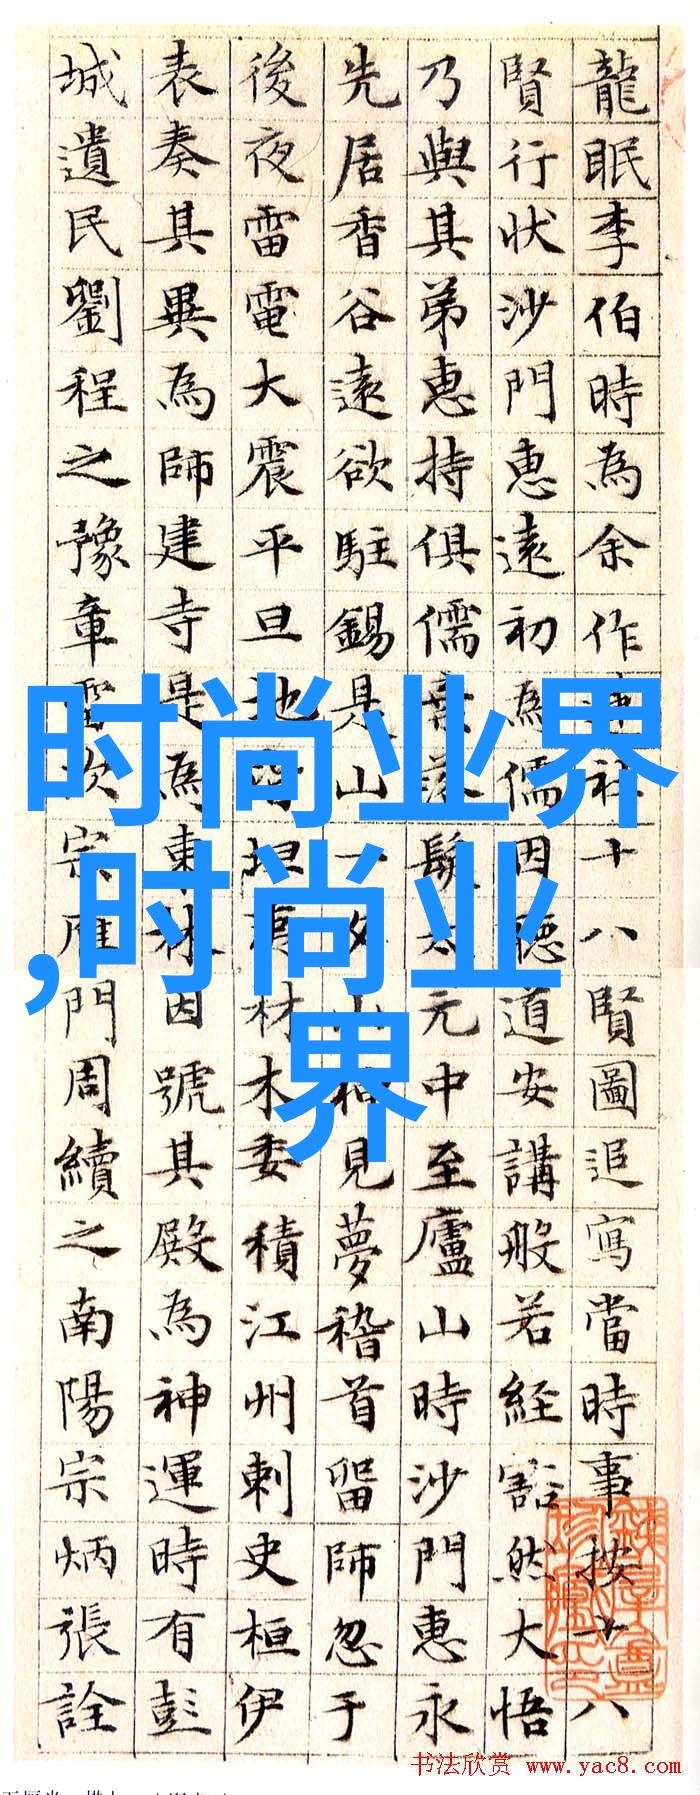 龍眠李伯時為余作社十八賢圖追寫當時事按十八
賢行狀沙門惠遠初為儒因聽道安講般若経豁然大悟
乃與其弟惠持俱儒落髮太元中至廬山時沙門惠永
先居香谷遠欲駐錫是山一夕山見夢稽首留師忽于
後夜雷電大震平旦地坦材木委積江州刺史桓伊
表奏其異為師建寺是為東林因號其殿為神運時有彭
城遺民劉程之豫章雷次宗雁門周續之南陽宗炳張詮
时尚业界
,时尚业
界
书法欣赏 www.yac8.com